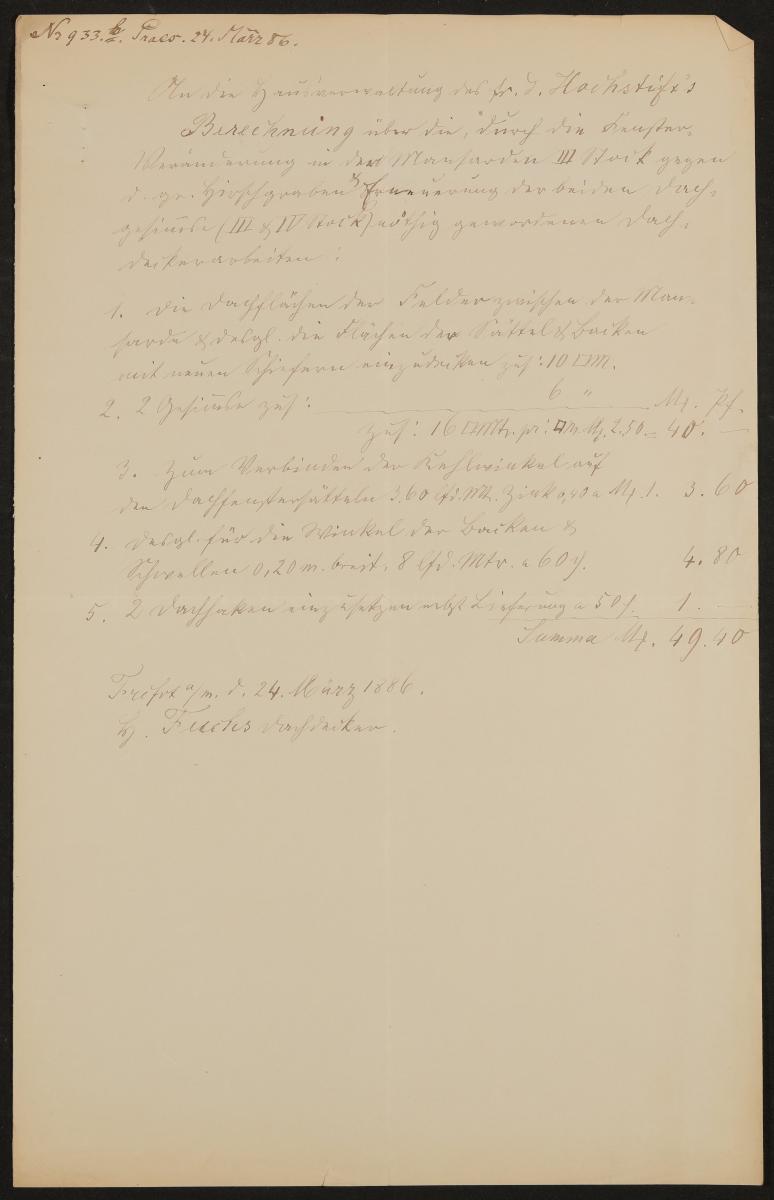 No 933.b. Praes. 24. März 86.
An die Hausverwaltung des fr. d. Hochstift's
Berechnung über die, durch die Fenster-
Veränderung in den Mansarden III Stock gegen
d. gr. Hirschgraben & Erneuerung der beiden Dach-
gesimse (III & IV Stock) nöthig gewordenen Dach-
deckerarbeiten:
1. Die Dachflächen der Felder zwischen der Man-
sarde & desgl. die Flächen der Sättel & Backen
mit neuen Schiefern einzudecken zus: 10 □M.
2. 2 Gesimse zus: 6 " Mk. Pf.
Zus: 16 □Mtr. pr: □M. Mk. 2.50 = 40. —
3. Zum Verbinden der Kehlwinkel auf
den Dachfenstersätteln 3,60 lfd. Mtr. Zink 0,40 a Mk. 1. 3. 60
4. Desgl. für die Winkel der Backen &
Schwellen 0,20 m. breit, 8 lfd. Mtr. a 60 ₰. 4. 80
5. 2 Dachhaken einzusetzen nebst Lieferung a 50 ₰. 1. —
Summa Mk. 49.40
Frkfrt a/m. d. 24. März 1886.
H. Fuchs Dachdecker.